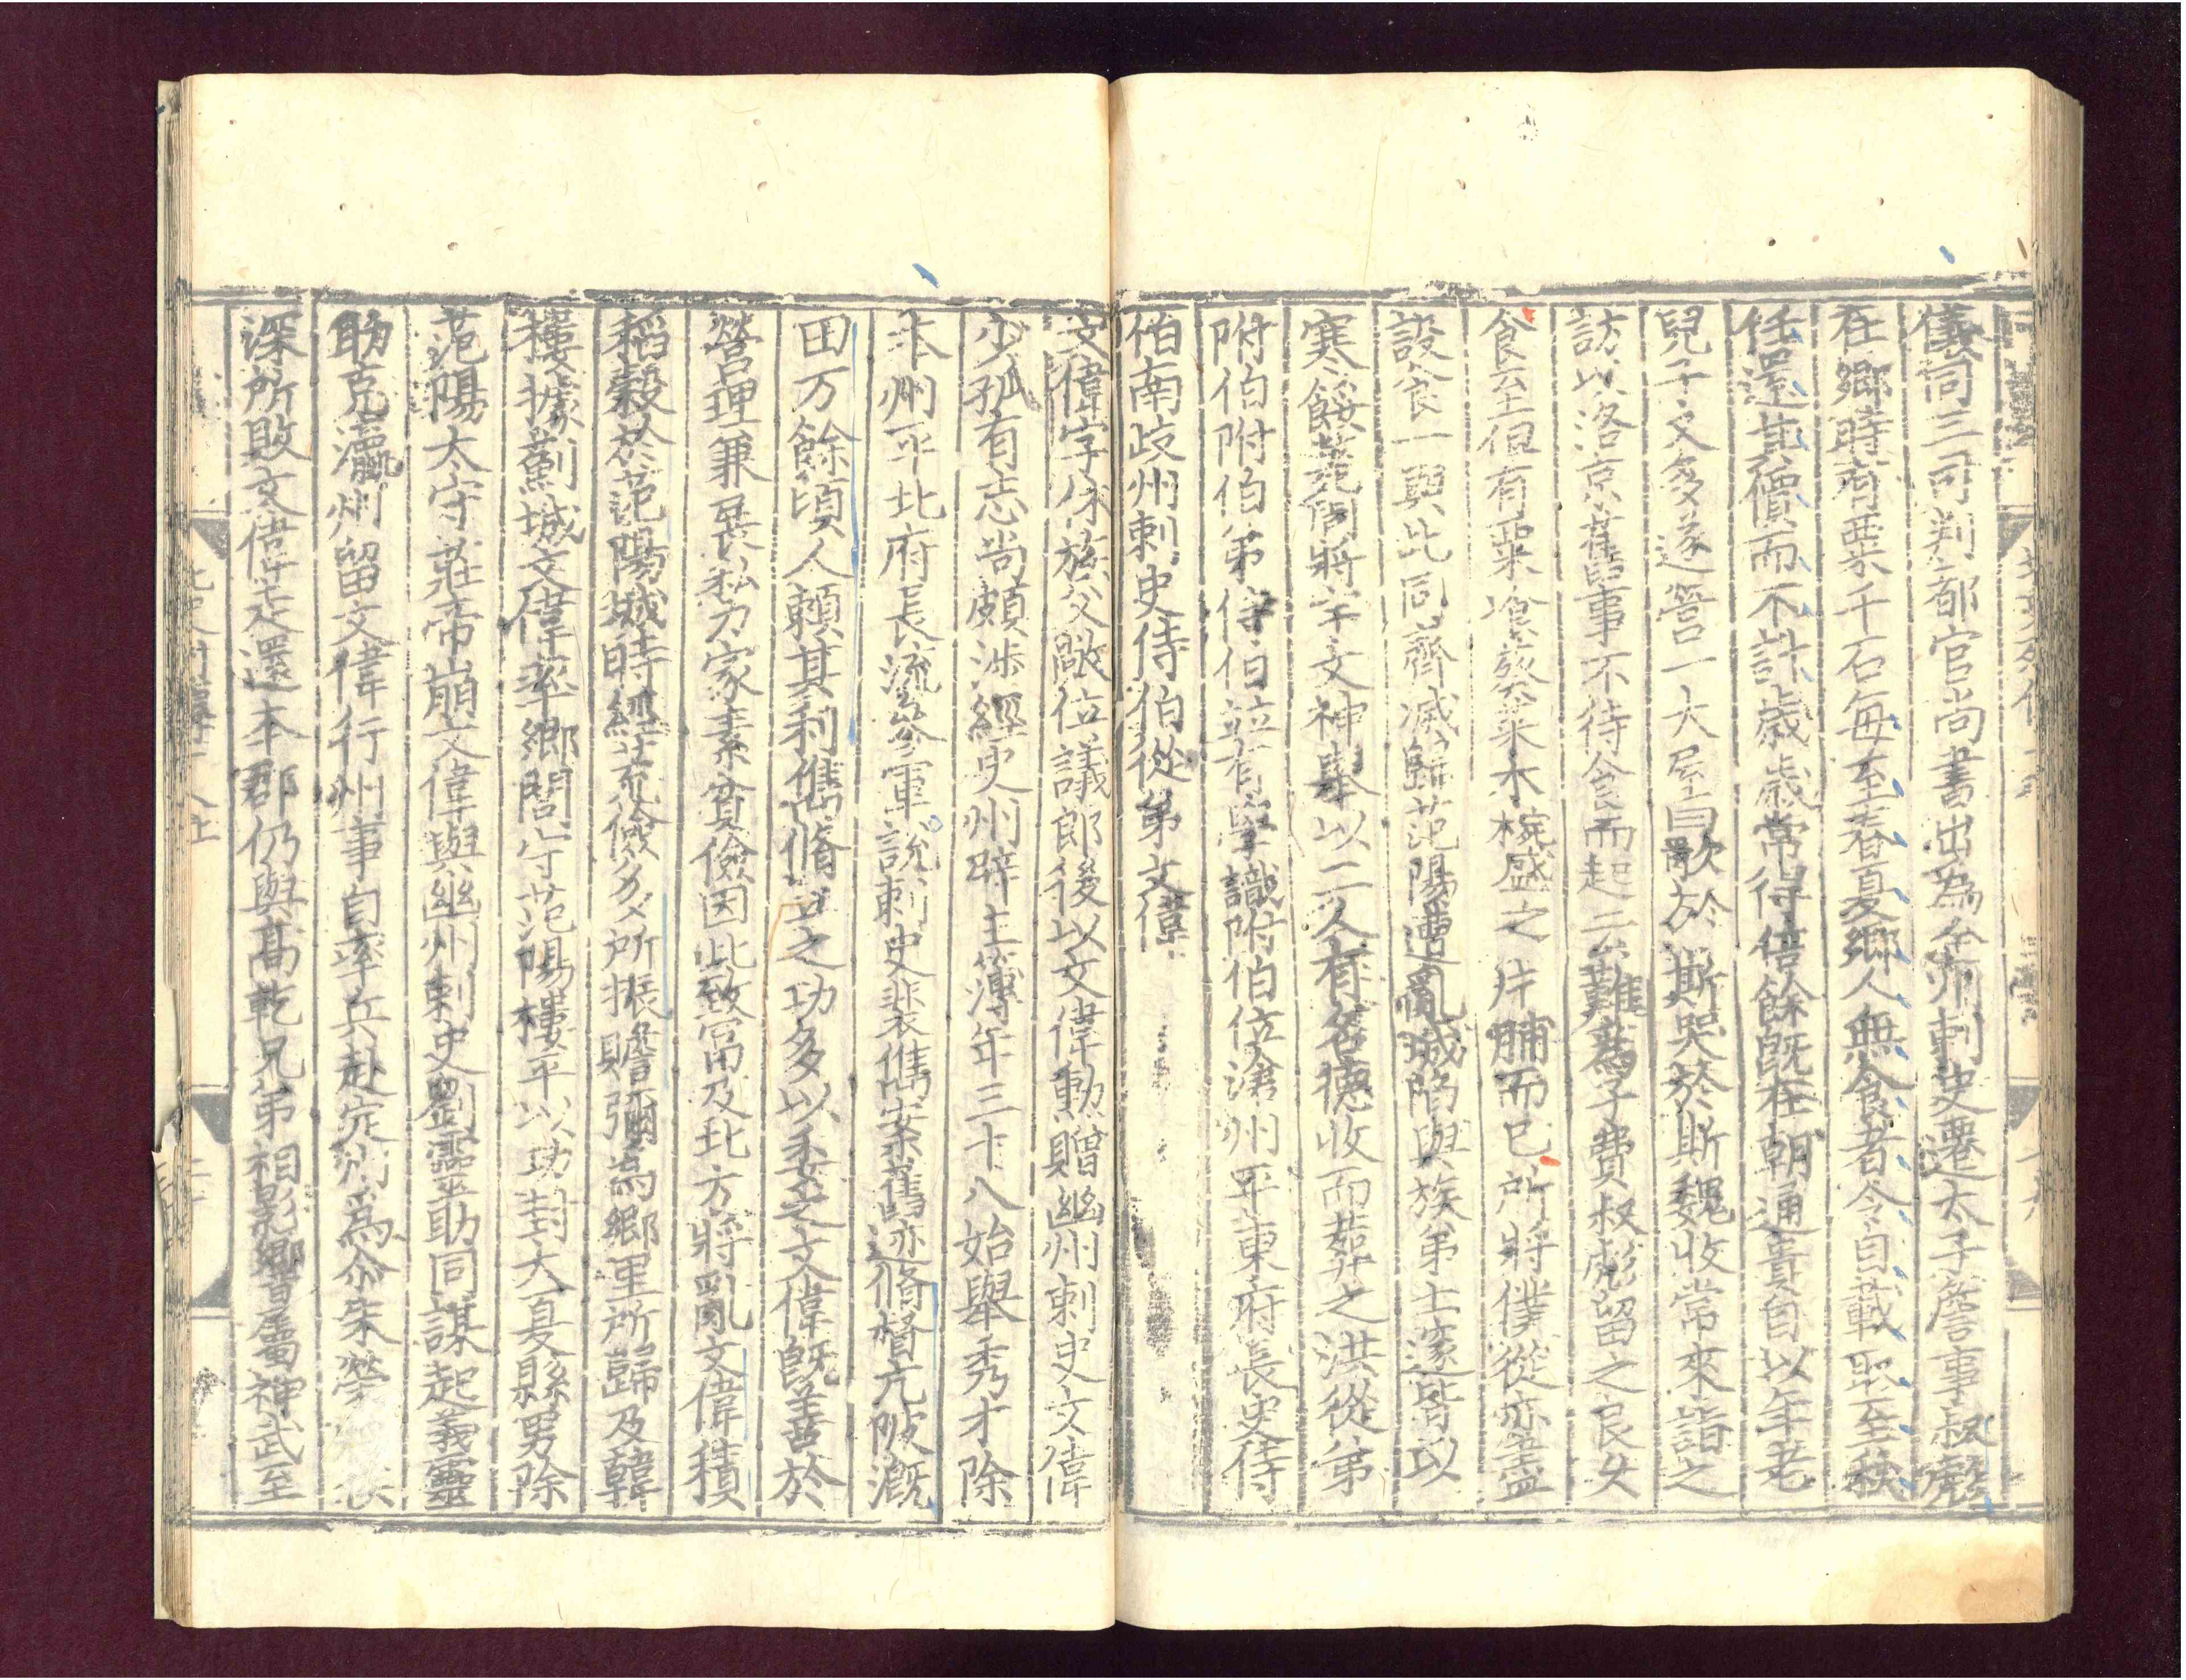 儀同三司判都官尚書出為合州刺史遷太子詹事叔彪
在鄉時有粟千石每至春夏鄉人無食者令自載取至秋
任還其價而不計歲歲常得倍餘既在朝通貴自以年老
兒子又多遂營一大屋曰歌於斯哭於斯魏收常來詣之
訪以洛京舊事不待食而起云難為子費叔彪留之良久
食至但有粟飡葵菜木椀盛之片脯而已所將僕從亦盡
設食一與此同齊滅歸范陽遭亂城陷與族弟士邃皆以
寒餒斃周將宇文神舉以二人有名德收而葬之洪從弟
附伯附伯弟侍伯並有學識附伯位滄州平東府長史侍
伯南歧州刺史侍伯從弟文偉
文偉字休族父敞位議郎後以文偉勳贈幽州刺史文偉
少孤有志尚頗涉經史州辟主簿年三十八始舉秀才除
本州平北府長流參軍說刺史裴儁案舊迹脩督亢陂溉
田万餘頃人賴其利儁脩立之功多以委之文偉既善於
營理兼展私力家素貧儉因此致富及北方將亂文偉積
稻穀於范陽城時經荒儉多所振贍彌為鄉里所歸及韓
樓據薊城文偉率鄉閭守范陽樓平以功封大夏縣男除
范陽太守莊帝崩文偉與幽州刺史劉靈助同謀起義靈
助克瀛州留文偉行州事自率兵赴定州為尒朱榮
深所敗文偉走還本郡仍與高乾兄弟相影響屬神武至